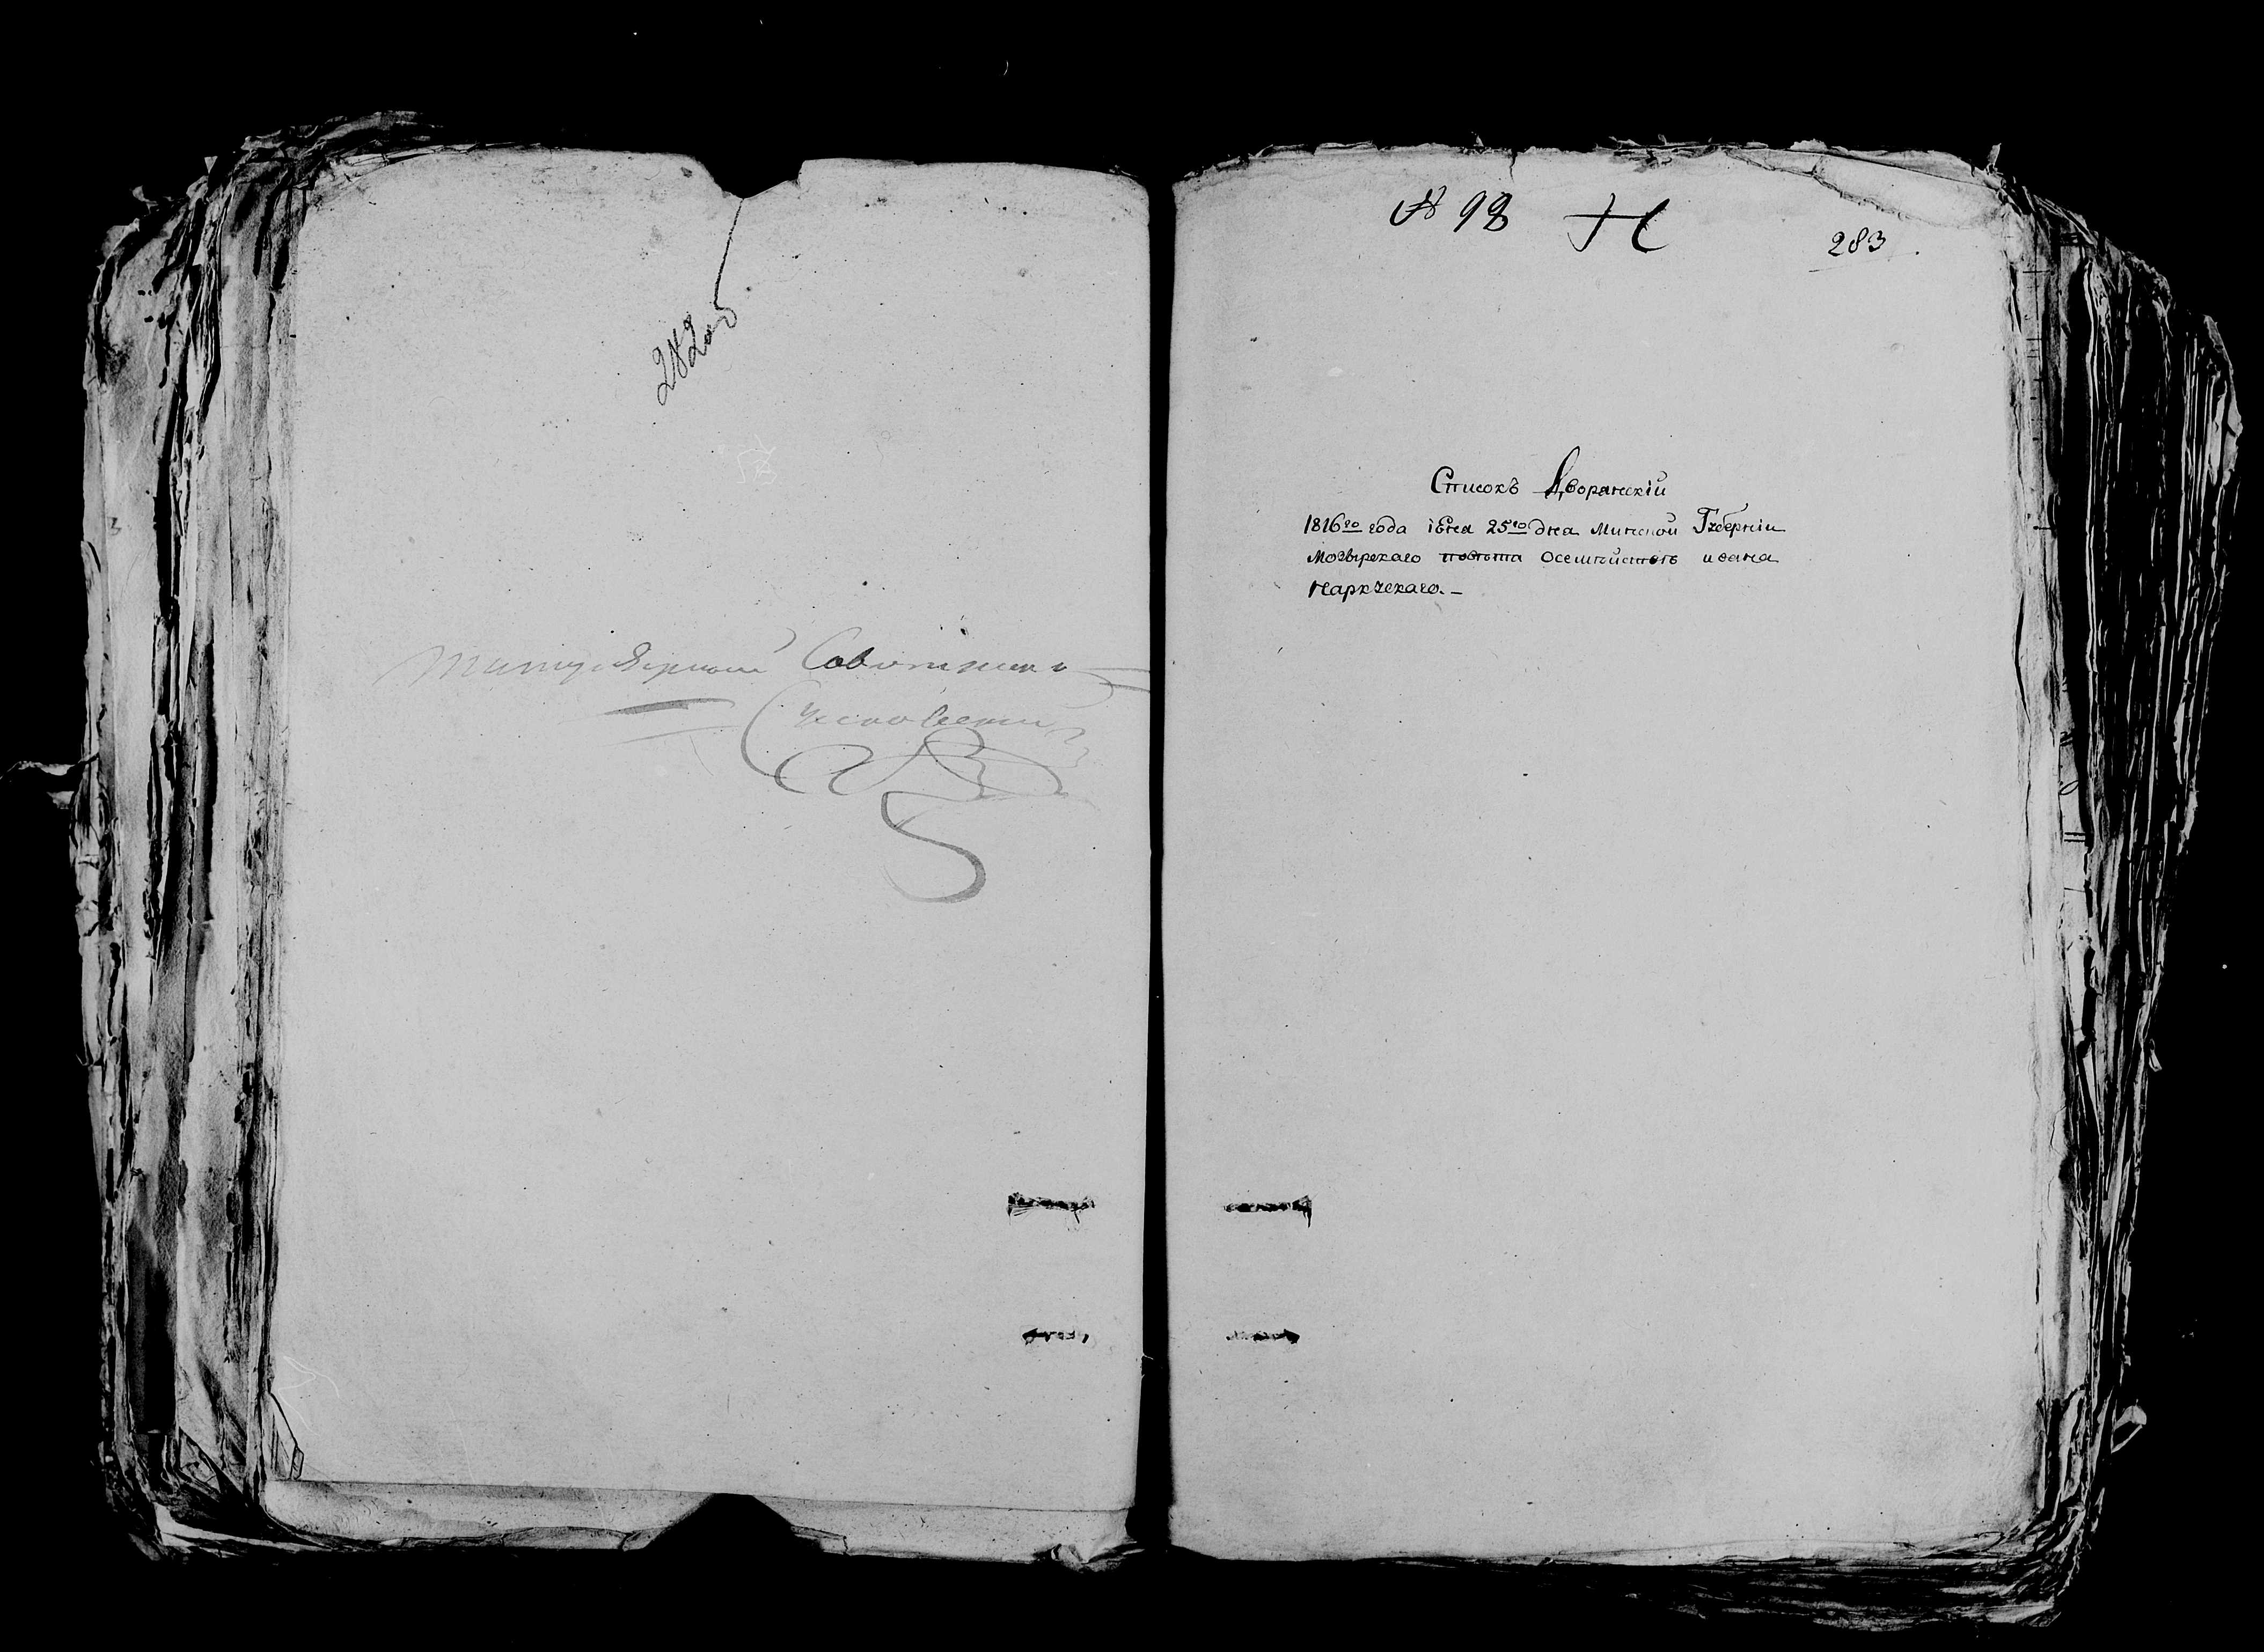 282об
Титулярный Советникъ
№ 98 Н
283
Списокъ Дворянскій
1816го года іюня 25го дня Минской Губерніи
Мозырскаго повѣта Осемнѣйстъ ивана
Наркускаго. –